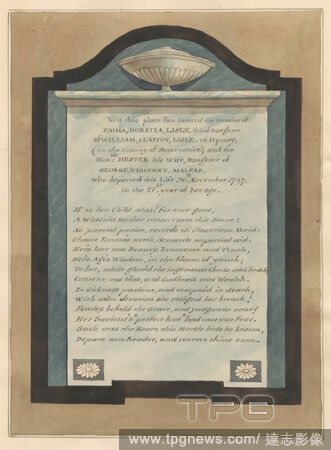 Near this place lies interr'd the remains of
EMMA, HORATIA, LISLE, third Daughter
of WILLIAM, CLAPCOT, LISLE, of Upway,
(in the County of Dorsetshire) and the
Honble HESTER his Wife, Daughter of
GEORGE, VISCOUNT, MALPAS,
who departed this Life, November 1797,
in the 21st year of her age.
If so her Child, alas! for ever gone,
A Widow'd Mother rears this Stone:
No partial praise, records th' illustrious Maid:
Chaste Emma's worth, demands unpaid aid.
Here lies now Beauty, Innocence and Truth,
Here lies Wisdom, in the bloom of youth;
To her, while glow'd the Cheeks with
Censure was bliss, and Wealth.
In sickness patient, and compos'd in death,
With calm devotion she resign'd her breath!
Fearless beheld the grave, and judgment near;
Her Saviour's "perfect love" had cast out Fear.
Such was the Heart, this Marble bids be known,
Depart now Reader, and correct thine own.
TPG
www.tpgnews.com / 達志影像